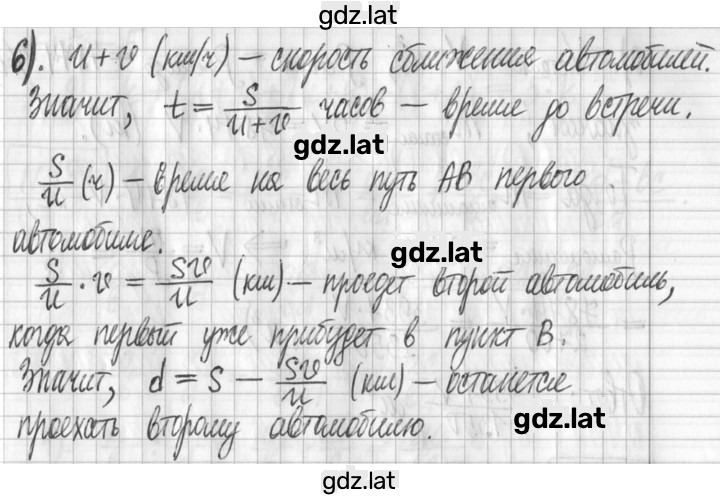 gdz.lat
6). u + v (км/ч) – скорость сближения автомобилей.
Значит, t = S/(u+v) часов – время до встречи.
gdz.lat
S/u (ч) – время на весь путь АВ первого
автомобиля.
gdz.lat
S/u · v = Sv/u (км) – проедет второй автомобиль,
когда первый уже прибудет в пункт В.
Значит, d = S – Sv/u (км) – останется
gdz.lat
проехать второму автомобилю.
gdz.lat